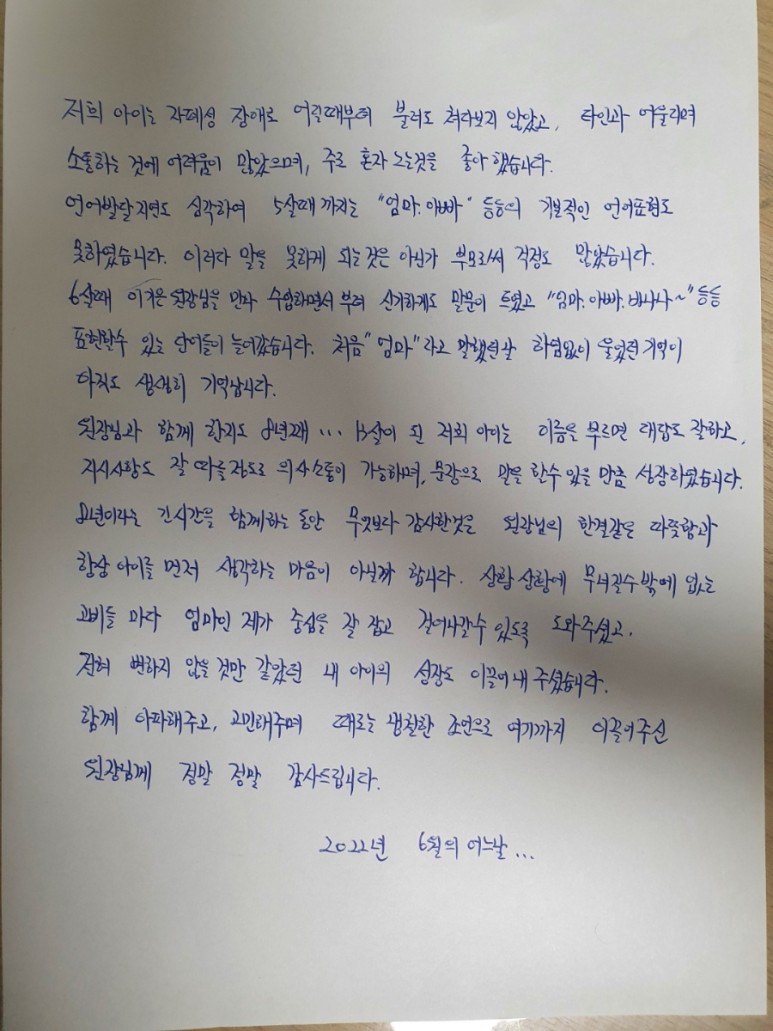 저희 아이는 자폐성 장애로 어릴때부터 불러도 쳐다보지 않았고, 타인과 어울리며
소통하는 것에 어려움이 많았으며, 주로 혼자 노는것을 좋아했습니다.
언어발달지연도 심각하여 5살때 까지는 "엄마. 아빠" 등등의 기본적인 언어표현도
못하였습니다. 이러다 말을 못하게 되는것은 아닌가 부모로서 걱정도 많았습니다.
6살때 원장님을 만나 수업하면서 부터 신기하게도 말문이 트였고 "엄마. 아빠. 바나나~" 등등
표현할수 있는 단어들이 늘어갔습니다. 처음 "엄마"라고 말했던날 하염없이 울었던 기억이
아직도 생생히 기억납니다.
원장님과 함께 한지도 8년째 ... 13살이 된 저희 아이는 이름을 부르면 대답도 잘하고,
지시사항도 잘 따를정도로 의사소통이 가능하며, 문장으로 말을 할수 있을 만큼 성장하였습니다.
8년이라는 긴시간을 함께하는 동안 무엇보다 감사한것은 원장님의 한결같은 따뜻함과
항상 아이를 먼저 생각하는 마음이 아닐까 합니다. 상황 상황에 무너질수밖에 없는
고비들 마다 엄마인 제가 중심을 잘 잡고 걸어나갈수 있도록 도와주셨고,
전혀 변하지 않을 것만 같았던 내 아이의 성장도 이끌어내 주셨습니다.
함께 아파해주고, 고민해주며 때로는 냉철한 조언으로 여기까지 이끌어주신
원장님께 정말 정말 감사드립니다.
2022년 6월의 어느날...